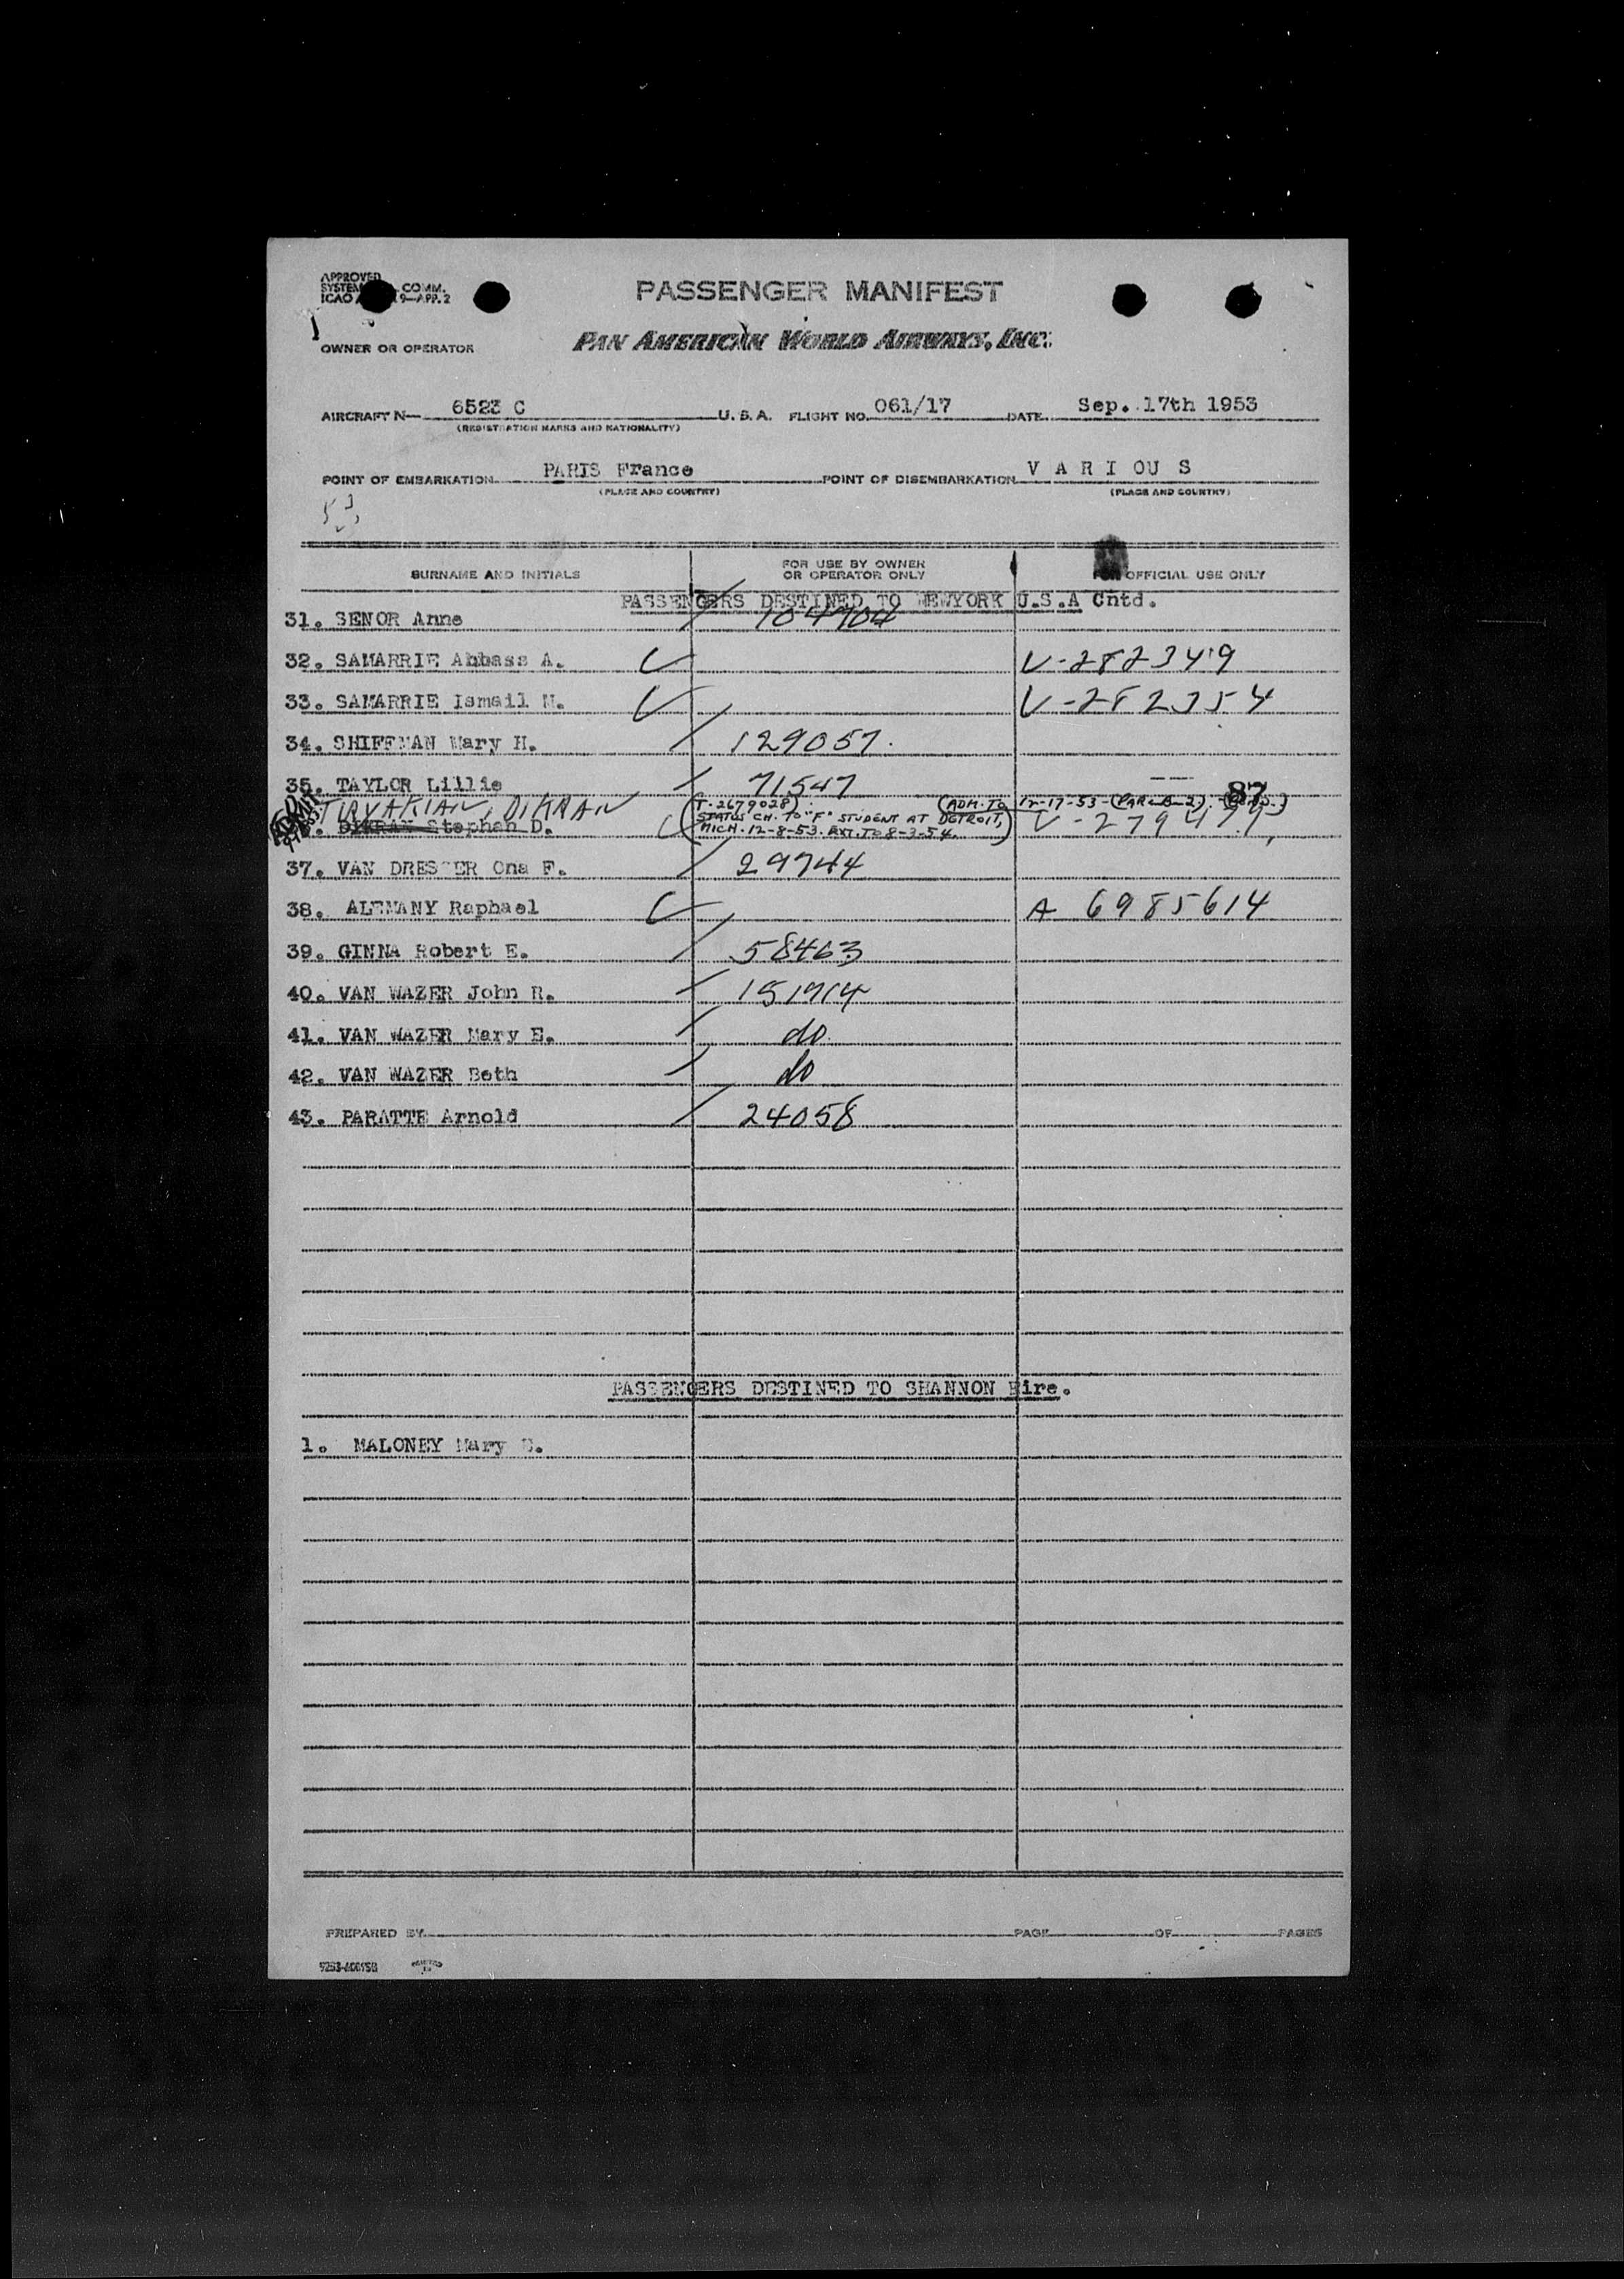 APPROVED
SYSTEM COMM.
ICAO 9-APP. 2
PASSENGER MANIFEST
OWNER OR OPERATOR PAN AMERICAN WORLD AIRWAYS, INC.
AIRCRAFT N- 6523 C U. S. A. FLIGHT NO. 061/17 DATE Sep. 17th 1953
(REGISTRATION MARKS AND NATIONALITY)
POINT OF EMBARKATION PARIS France POINT OF DISEMBARKATION V A R I OU S
(PLACE AND COUNTRY) (PLACE AND COUNTRY)
SURNAME AND INITIALS FOR USE BY OWNER OR OPERATOR ONLY FOR OFFICIAL USE ONLY
PASSENGERS DESTINED TO NEWYORK U.S.A Cntd.
31. SENOR Anne 104704
32. SAMARRIE Abbass A. V-282349
33. SAMARRIE Ismail M. V-282354
34. SHIFFMAN Mary H. 129057.
35. TAYLOR Lillie 71547 87
ADMIT TIRYAKIAN, DIKRAN (T-2679028) (ADM. TO 12-17-53-(PAR-B-2)
DIKRAN Stephan D. STATUS CH. TO "F" STUDENT AT DETROIT, V-279479
MICH. 12-8-53. EXT. TO 8-3-54.)
37. VAN DRESSER Ona F. 29744
38. ALEMANY Raphael A 6985614
39. GINNA Robert E. 58463
40. VAN WAZER John R. 151914
41. VAN WAZER Mary E. do
42. VAN WAZER Beth do
43. PARATTE Arnold 24058
PASSENGERS DESTINED TO SHANNON Eire.
1. MALONEY Mary
PREPARED BY PAGE OF PAGES